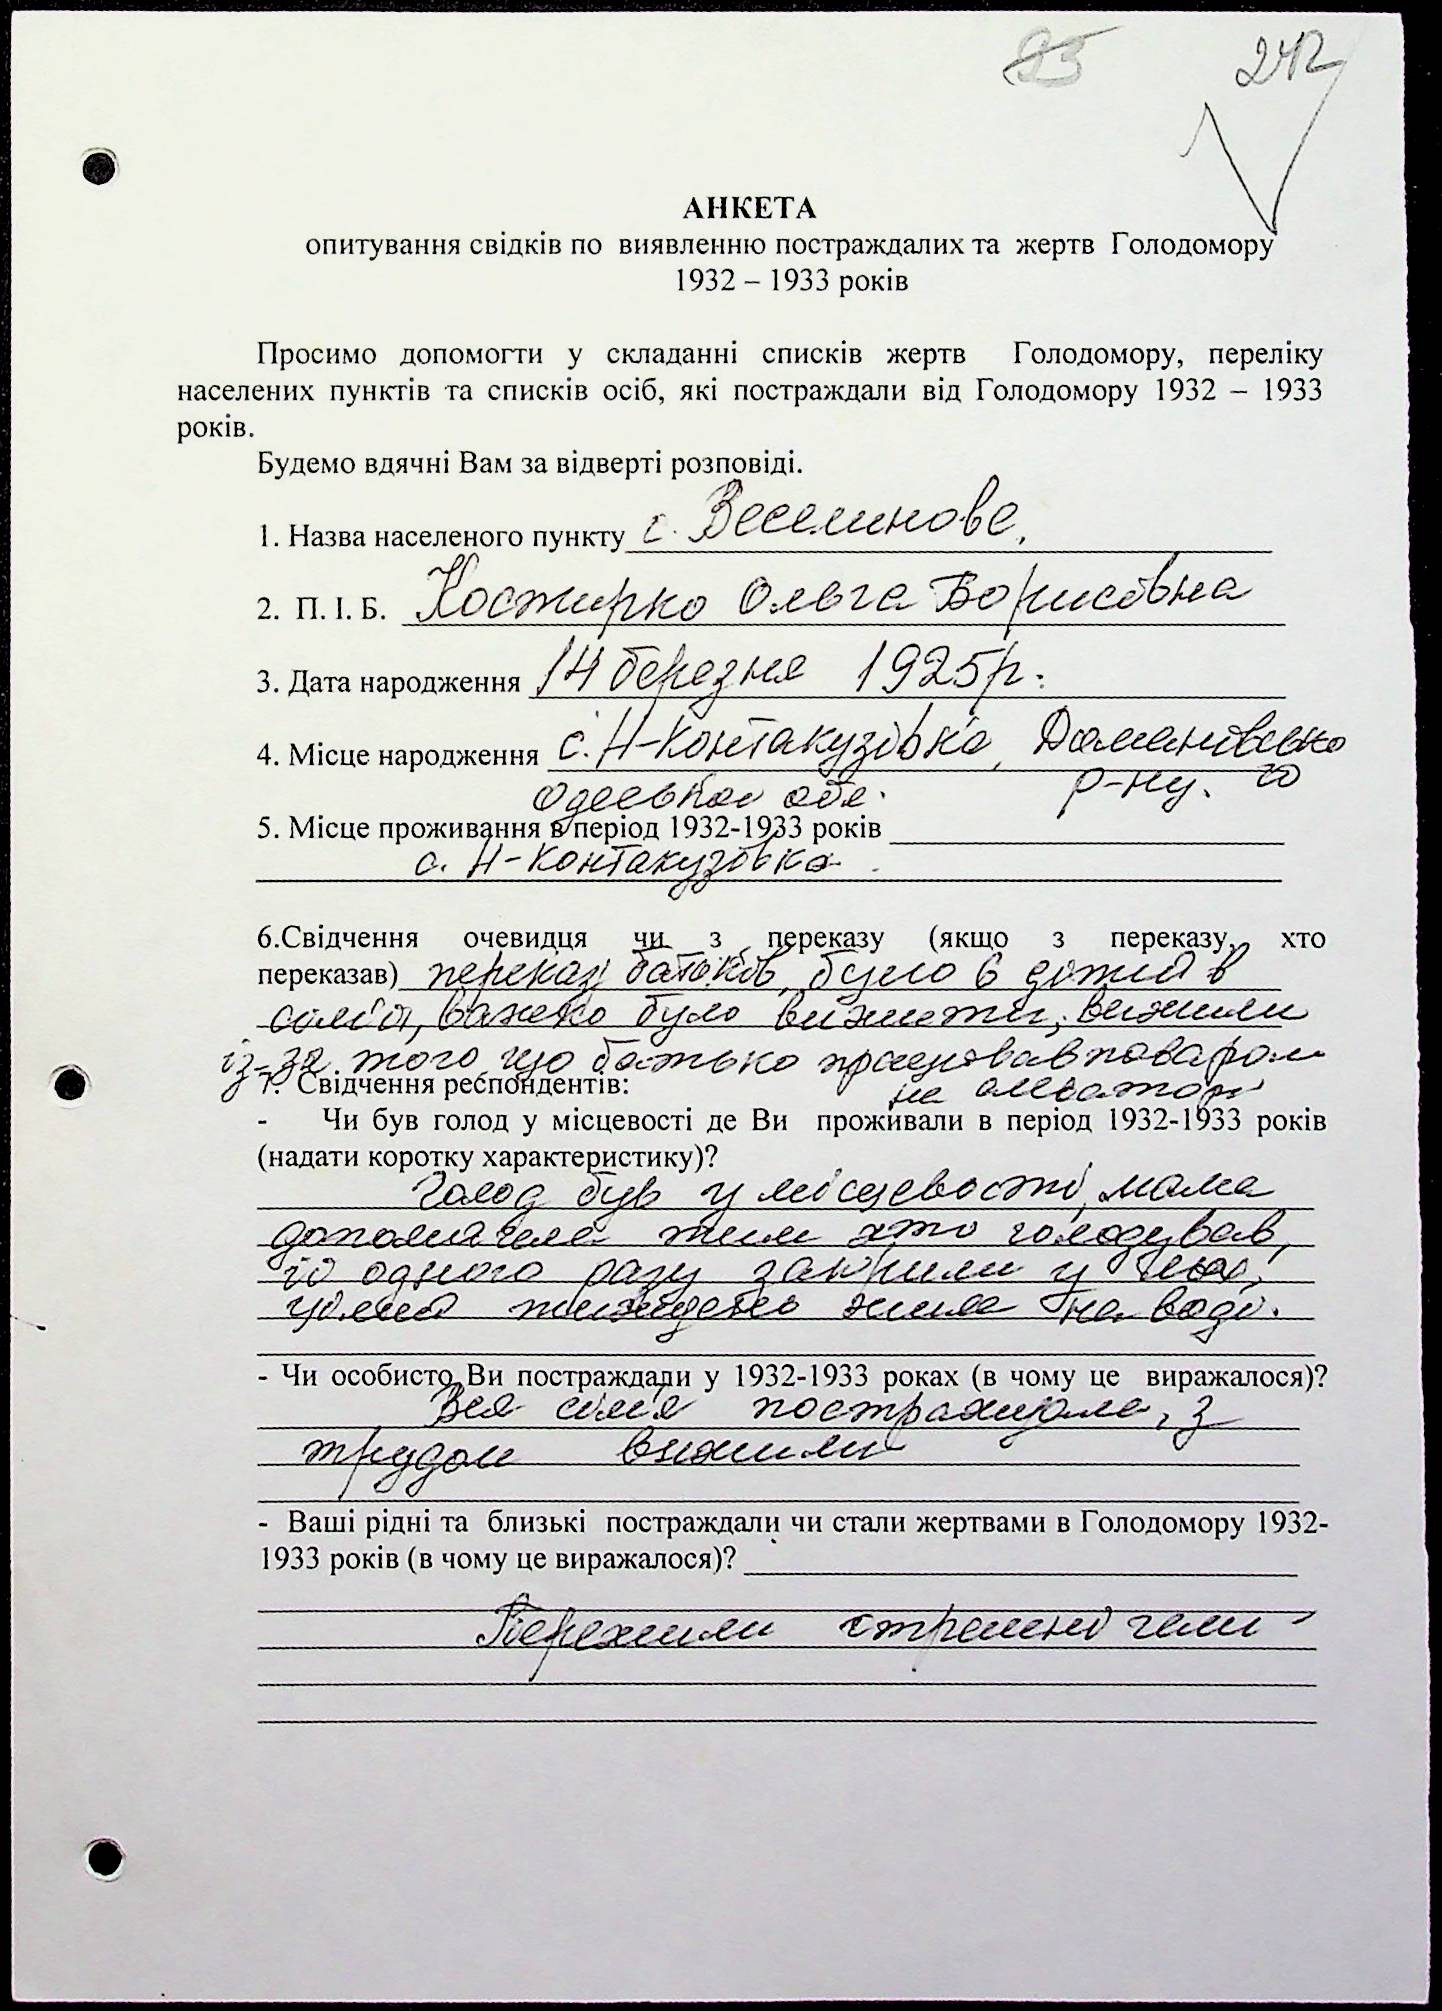 242
АНКЕТА
опитування свідків по виявленню постраждалих та жертв Голодомору
1932 – 1933 років
Просимо допомогти у складанні списків жертв Голодомору, переліку
населених пунктів та списків осіб, які постраждали від Голодомору 1932 – 1933
років.
Будемо вдячні Вам за відверті розповіді.
1. Назва населеного пункту с. Веселинове.
2. П. І. Б. Костирко Ольга Борисівна
3. Дата народження 14 березня 1925р.
4. Місце народження с. Н-Контакузівка, Доманівсько
Одеської обл. р-ну. го
5. Місце проживання в період 1932-1933 років
с. Н-Контакузівка.
6.Свідчення очевидця чи з переказу (якщо з переказу, хто
переказав) переказ батьків, було 6 дітей в
сім'ї, важко було вижити, вижили
із-за того, що батько працював поваром
7. Свідчення респондентів: на
- Чи був голод у місцевості де Ви проживали в період 1932-1933 років
(надати коротку характеристику)?
Голод був у місцевості, мама
допомагала тим хто голодував,
її одного разу закрили у
цілий тиждень жила на воді.
- Чи особисто Ви постраждали у 1932-1933 роках (в чому це виражалося)?
Вся сім'я постраждала, з
трудом вижили
- Ваші рідні та близькі постраждали чи стали жертвами в Голодомору 1932-
1933 років (в чому це виражалося)?
Пережили страшенні